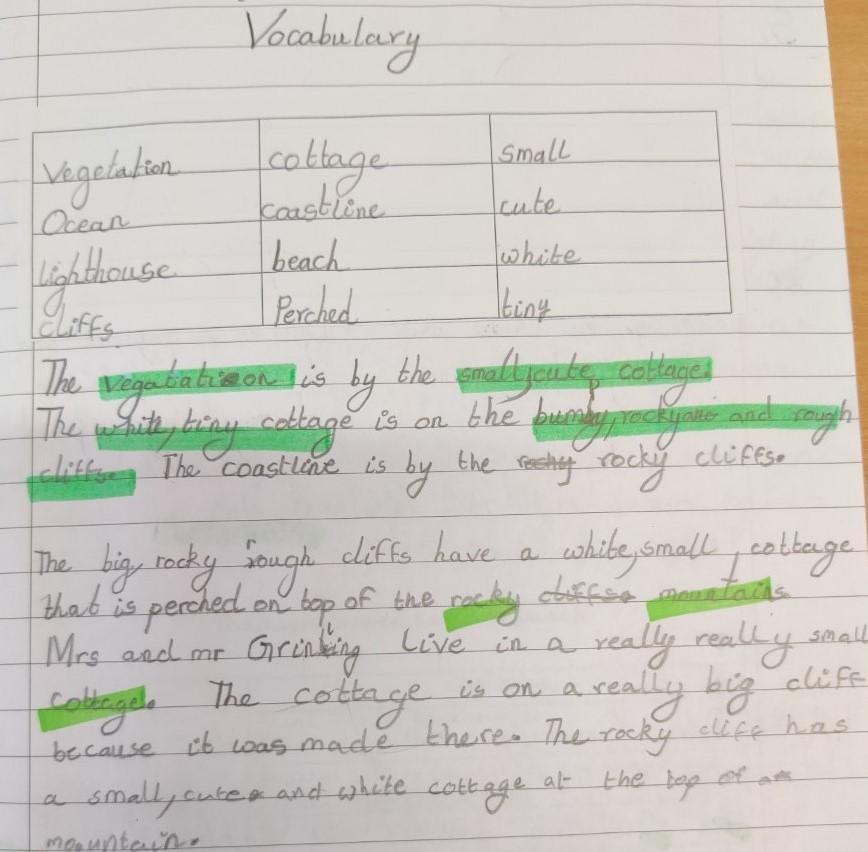 Vocabulary
Vegetation cottage small
Ocean coastline cute
lighthouse beach white
cliffs Perched tiny
The vegatation is by the small, cute, cottage.
The white, tiny cottage is on the bumby, rocky and rough
cliffs. The coastline is by the rocky cliffs.
The big, rocky rough cliffs have a white, small, cottage
that is perched on top of the rocky mountains
Mrs and mr Grinling live in a really really small
cottage. The cottage is on a really big cliff
because it was made there. The rocky cliff has
a small, cute and white cottage at the top of a
mountain.